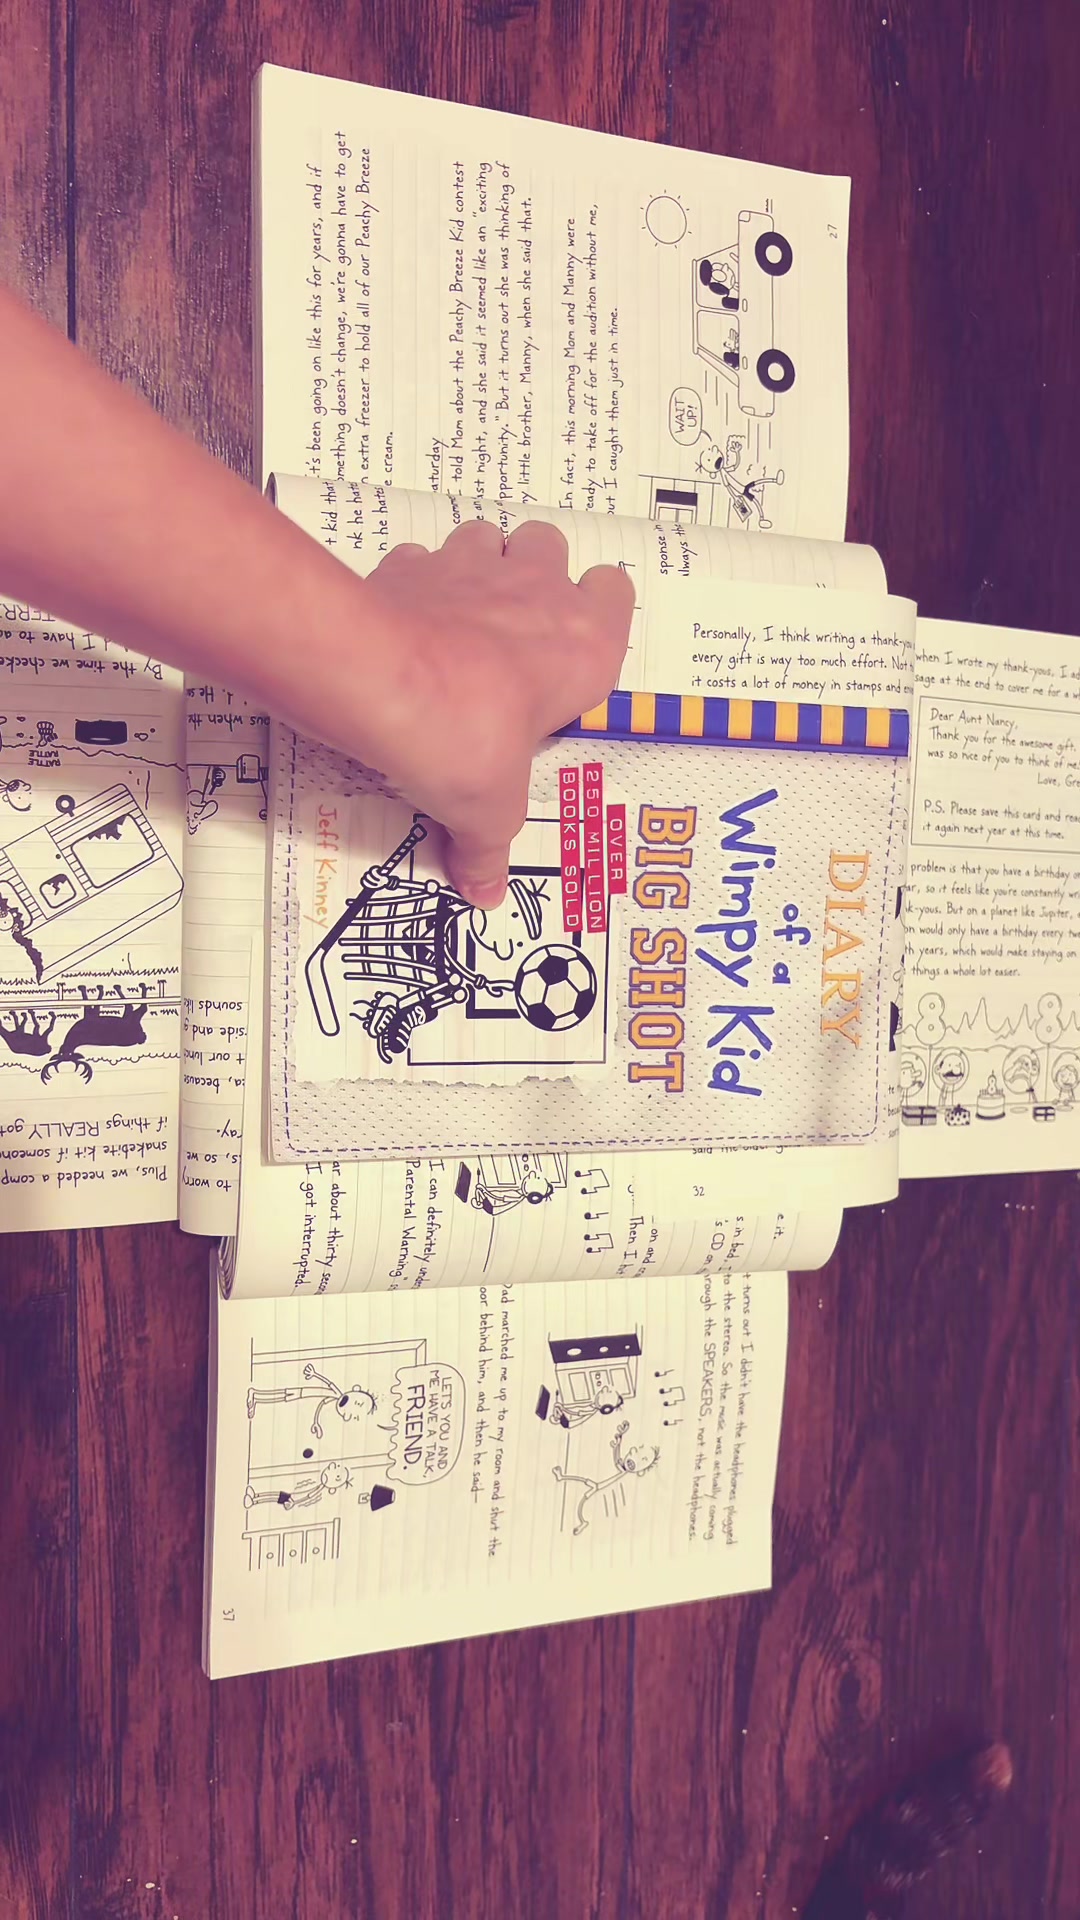 DIARY
of a
Wimpy Kid
BIG SHOT
OVER
250 MILLION
BOOKS SOLD
Jeff Kinney
t's been going on like this for years, and if
omething doesn't change, we're gonna have to get
extra freezer to hold all of our Peachy Breeze
e cream.
aturday
told Mom about the Peachy Breeze Kid contest
ast night, and she said it seemed like an "exciting
pportunity." But it turns out she was thinking of
y little brother, Manny, when she said that.
In fact, this morning Mom and Manny were
eady to take off for the audition without me,
ut I caught them just in time.
WAIT
UP!
27
t kid that
nk he hat
n he hate
crazy
sponse in
lways th
Personally, I think writing a thank-you
every gift is way too much effort. Not
it costs a lot of money in stamps and
32
when I wrote my thank-yous, I ad
sage at the end to cover me for a w
Dear Aunt Nancy,
Thank you for the awesome gift.
was so nice of you to think of me!
Love, Gre
P.S. Please save this card and rea
it again next year at this time.
problem is that you have a birthday
ar, so it feels like you're constantly wri
k-yous. But on a planet like Jupiter,
on would only have a birthday every tw
th years, which would make staying on
things a whole lot easier.
8
8
8
By the time we checke
d I have to
RATTLE
RATTLE
if things REALLY got
snakebite kit if someone
Plus, we needed a comp
d. He
ous when th
sounds lik
side and
t our lunc
a, because
ay.
s, so we
to worry
e it.
s in bed,
s CD on
on and
Then I
I can definitely unde
Parental Warning"
ar about thirty seco
I got interrupted.
t turns out I didn't have the headphones plugged
to the stereo. So the music was actually coming
rough the SPEAKERS, not the headphones.
Dad marched me up to my room and shut the
oor behind him, and then he said—
LET'S YOU AND
ME HAVE A TALK,
FRIEND.
37